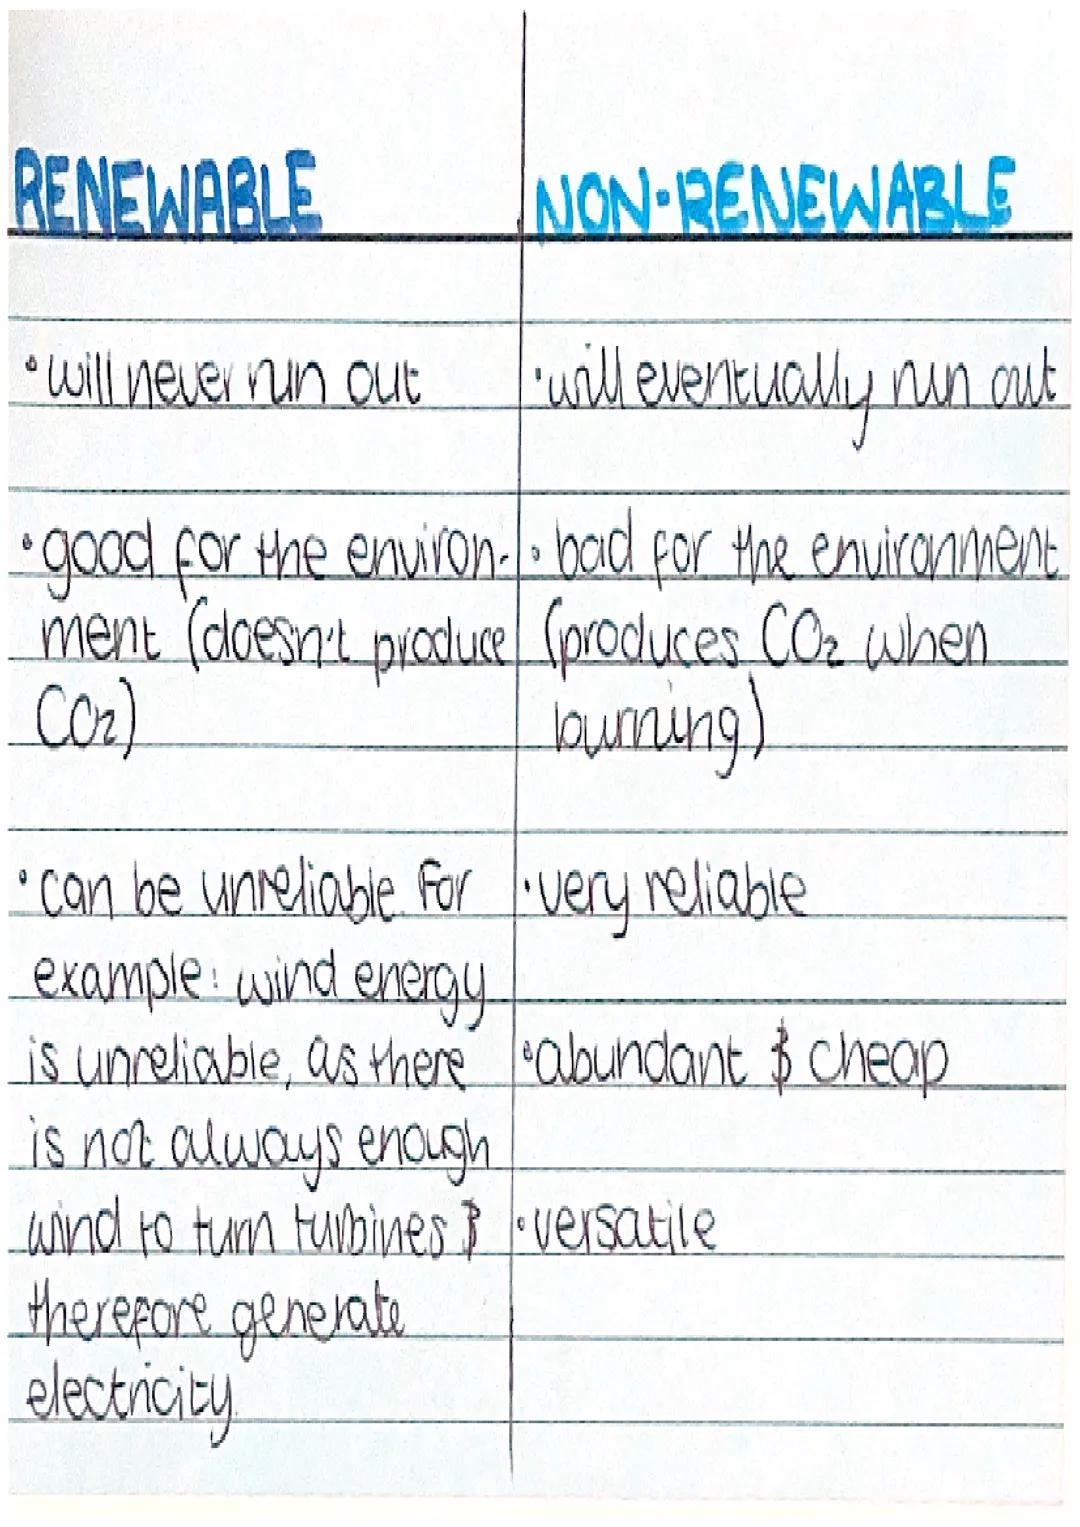 RENEWABLE
• will never run out
• good for the environ-
ment (doesn't produce
CO2)
• can be unreliable. For
example: wind energy
is unreliable, as there
is not always enough
wind to turn turbines &
therefore generate
electricity.
NON-RENEWABLE
• will eventually run out
• bad for the environment
(produces CO2 when
burning)
• very reliable
• abundant & cheap
• versatile